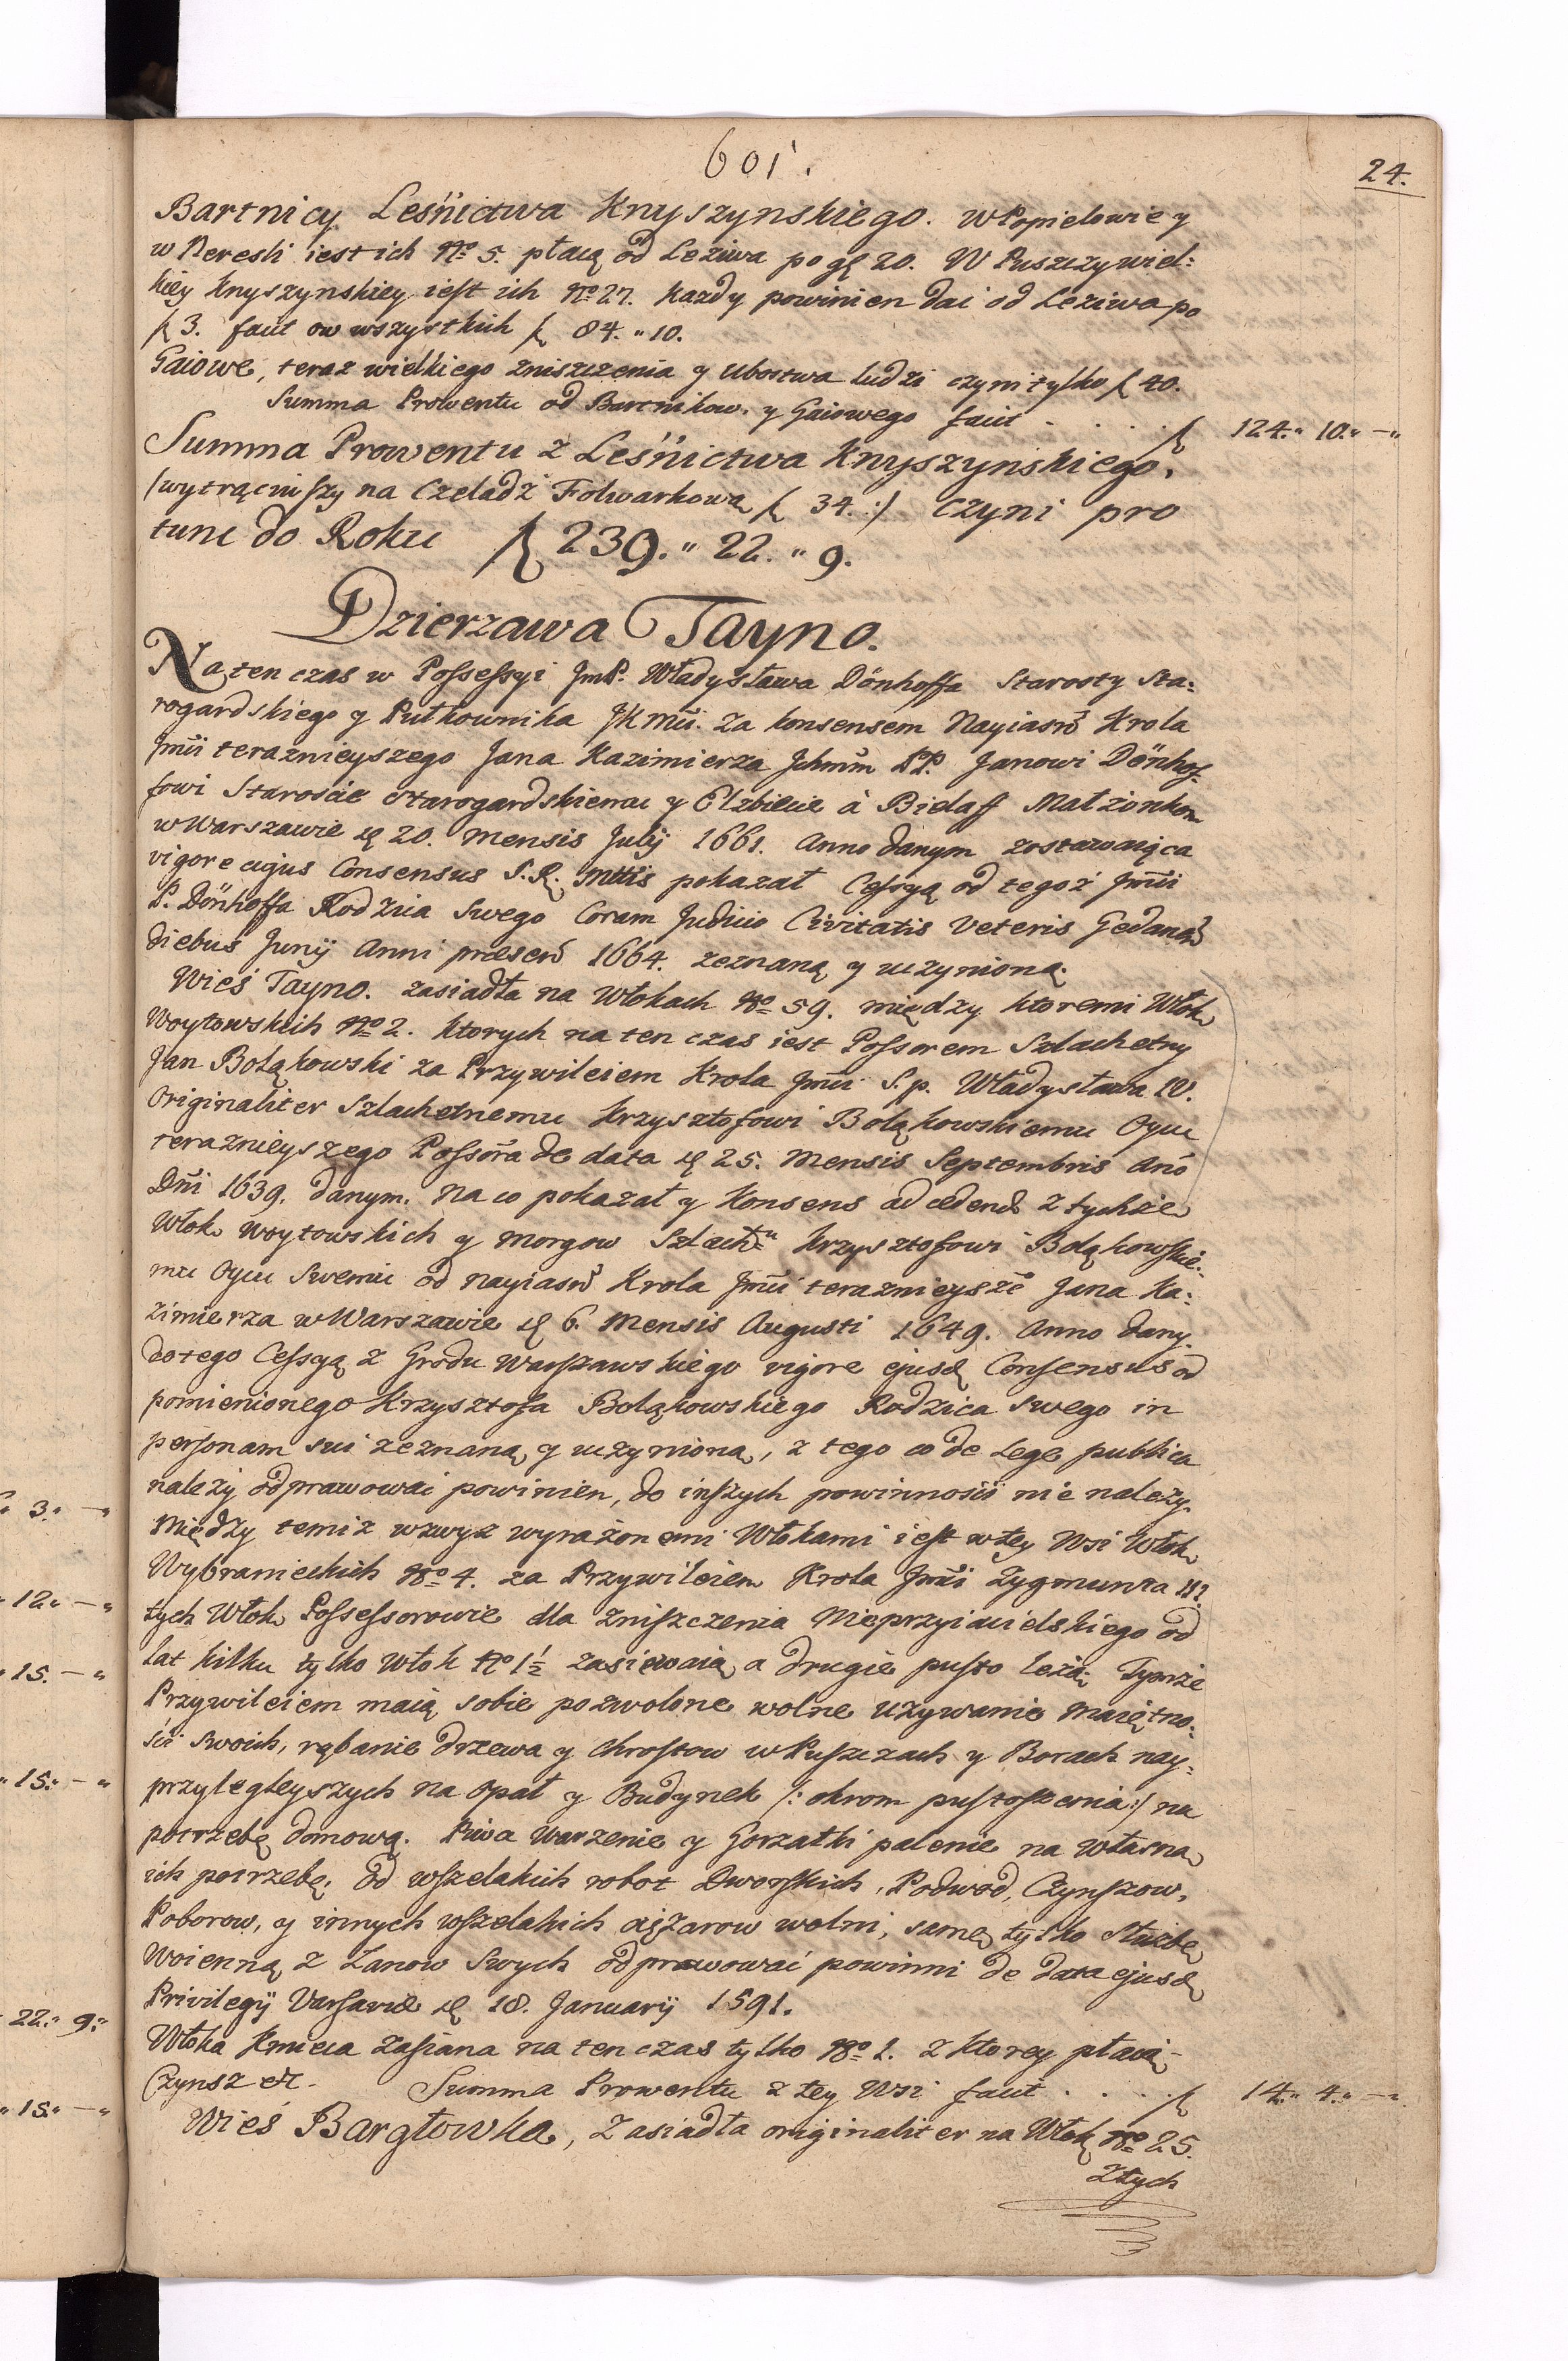 601.
24.
Bartnicy Leśnictwa Knyszynskiego. W Popielowie y
w Peresli iest ich No 5. płacą od Leziwa po gę 20. W Puszczy wiel:
kiey Knyszynskiey iest ich No 27. Kazdy powinien dai od Leziwa po
f 3. facit ow wszystkich f 84. " 10.
Gaiowe, teraz wielkiego zniszczenia y ubostwa ludzi czyni tylko f 40.
Summa Prowentu od Bartnikow. y Gaiowego facit . . . . f 124. " 10. " – "
Summa Prowentu z Leśnictwa Knyszynskiego,
/wytrąciwszy na Czeladź Folwarkową f 34. :/ czyni pro
tunc do Roku f 239. " 22. " 9.
Dzierzawa Tayno.
Na ten czas w Possessyi JmP. Władysława Dönhoffa Starosty Sta:
rogardskiego y Pułkownika JKMci. za konsensem Nayiasń Krola
Jmci teraznieyszego Jana Kazimierza Ichmm PP. Janowi Dönhof-
fowi Staroście Starogardskiemu y Elzbiecie à Bielaff Małzonkom
w Warszawie dę 20. Mensis July 1661. Anno danym zostawaiąca
vigore cujus Consensus S. R. Mttis pokazał Cessyą od tegoż Jmci
P. Dönhoffa Rodzica Swego Coram Judicio Civitatis Veteris Gedanen
diebus Junij Anni presen 1664. zeznaną y uczynioną.
Wieś Tayno. zasiadła na Włokach No 59. między ktoremi Włok
Woytowskich No 2. ktorych na ten czas iest Possorem Szlachetny
Jan Boląkowski za Przywileiem Krola Jmci S. p. Władysława IV.
Originaliter Szlachetnemu Krzysztofowi Boląkowskiemu Oycu
teraznieyszego Possora de data dę 25. Mensis Septembris Ano
Dni 1639. danym. Na co pokazał y Konsens ad cedend z tychże
Włok Woytowskich y morgow Szlach Krzysztofowi Boląkowskie:
mu Oycu Swemu od nayiasń Krola Jmci teraznieysze Jana Ka:
zimierza w Warszawie dę 6. Mensis Augusti 1649. Anno dany.
do tego Cessyą z Grodu Warszawskiego vigore ejusdę Consensus od
pomienionego Krzysztofa Boląkowskiego Rodzica swego in
personam sui zeznaną y uczynioną, z tego co de Lege publica
należy odprawowai powinien, do inszych powinnosci nie należy.
Między temiz wzwyz wyrażonemi Włokami iest w tey Wsi Włok
Wybranieckich No 4. za Przywileiem Krola Jmci Zygmunta III
tych Włok Possessorowie dla zniszczenia Nieprzyiacielskiego od
lat kilku tylko Włok No 1½ zasiewaią a drugie pusto leżą. Tymże
Przywileiem maią sobie pozwolone wolne używanie maiętno:
ści swoich, rąbanie drzewa y chrostow w Puszczach y Borach nay:
przyległeyszych na opał y Budynek /: okrom pustoszenia :/ na
potrzebę domową. Piwa warzenie y Gorzałki palenie na własną
ich potrzebę. Od wszelakich robot Dworskich, Podwod, Czynszow,
Poborow, y innych wszelakich ciężarow wolni, samę tylko służbę
Woienną z Łanow Swych odprawować powinni de data ejusdę
Privilegij Varsavie dę 18. Januarij 1591.
Włoka Kmieca zasiana na ten czas tylko No 1. z ktorey płacą
Czynsz etc. Summa Prowentu z tey Wsi facit . . . . f 14. " 4. " – "
Wieś Bargłowka, Zasiadła originaliter na Włok No 25.
Ztych
3. " – "
12. " – "
15. – "
15. " – "
22. " 9. "
15. " – "